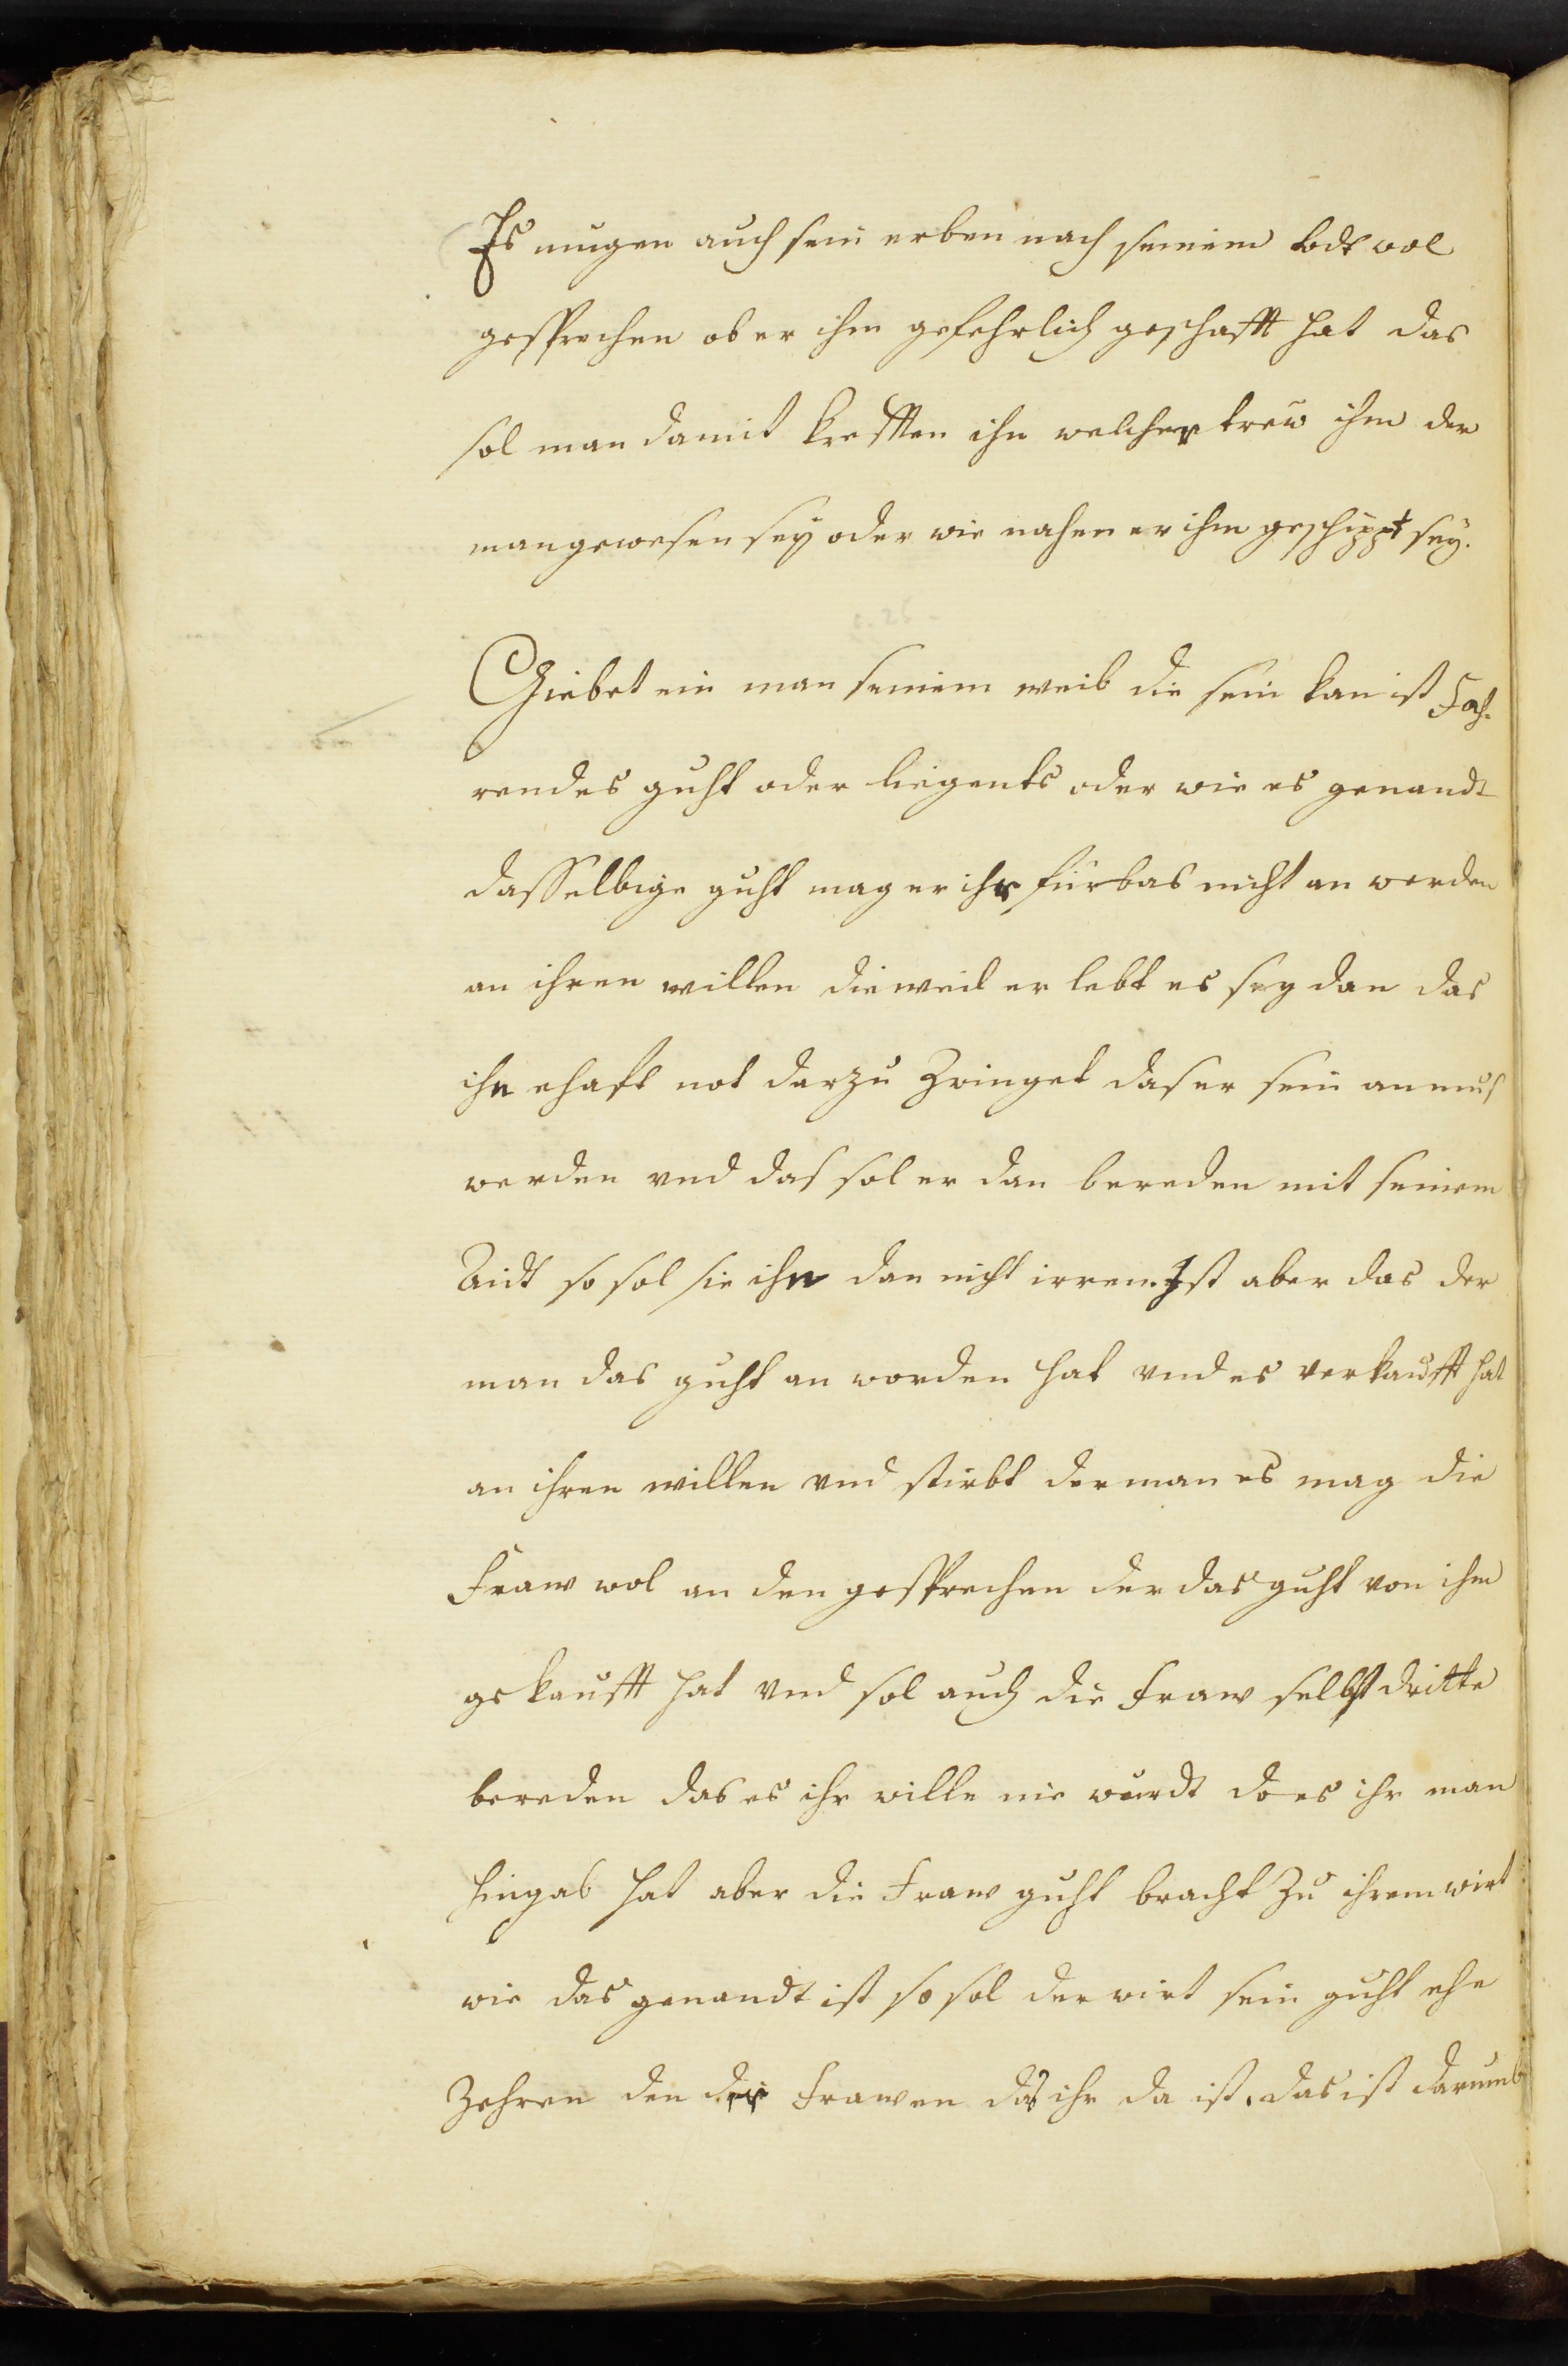 Es mugen auch sein erben nach seinem todt wol
gesprechen ob er ihm gefehrlich geschafft hat das
sol man damit brefften ihn welcher treuw ihm der
man gewesen seÿ oder wie nahen er ihm geschippt seÿ.
c. 26
Giebet ein man seinem weib die sein kan ist Fah-
rendes guht oder liegents oder wie es genandt
dasselbige guht mag er ihr fürbas nicht an werden
an ihren willen dieweil er lebt es seÿ dan das
ihn ehaft not darzu Zwinget das er sein an mus
werden vnd das sol er dan bereden mit seinem
Aidt so sol sie ihn dan nicht irren. Ist aber das der
man das guht an worden hat vnd es verkaufft hat
an ihren willen vnd stirbt der man es mag die
Fraw wol an den gesprechen der das guht von ihm
gekaufft hat vnd sol auch die Fraw selbst dritte
bereden das es ihr wille nie wurdt do es ihr man
hingab hat aber die Fraw guht bracht Zu ihrem wirt
wie das genandt ist so sol der wirt sein guht ehe
Zehren den der Frawen das ihr da ist. das ist darumb